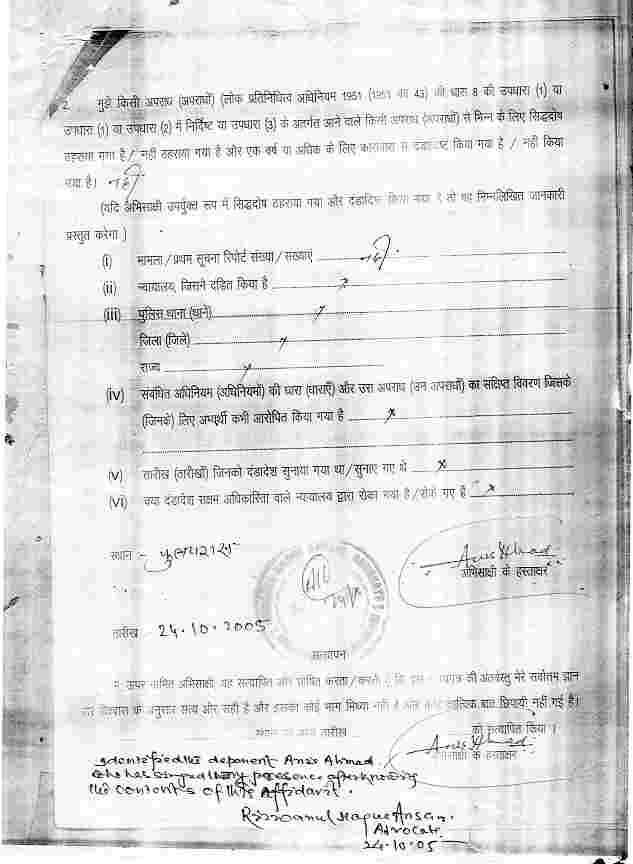 2. मुझे किसी अपराध (अपराधों) (लोक प्रतिनिधित्व अधिनियम 1951 (1951 का 43) की धारा 8 की उपधारा (1) या
उपधारा (1) या उपधारा (2) में निर्दिष्ट या उपधारा (3) के अंतर्गत आने वाले किसी अपराध (अपराधों) से भिन्न के लिए सिद्धदोष
ठहराया गया है / नहीं ठहराया गया है और एक वर्ष या अधिक के लिए कारावास से दंडादिष्ट किया गया है / नहीं किया
गया है। नहीं
(यदि अभिसाक्षी उपर्युक्त रूप में सिद्धदोष ठहराया गया और दंडादिष्ट किया गया है तो वह निम्नलिखित जानकारी
प्रस्तुत करेगा )
(i) मामला / प्रथम सूचना रिपोर्ट संख्या / संख्याएं नहीं
(ii) न्यायालय, जिसने दंडित किया है x
(iii) पुलिस थाना (थाने) x
जिला (जिले) x
राज्य x
(iv) संबंधित अधिनियम (अधिनियमों) की धारा (धाराएँ) और उस अपराध (उन अपराधों) का संक्षिप्त विवरण जिसके
(जिनके) लिए अभ्यर्थी कभी आरोपित किया गया है x
(v) तारीख (तारीखों) जिनको दंडादेश सुनाया गया था / सुनाए गए थे x
(vi) क्या दंडादेश सक्षम अधिकारिता वाले न्यायालय द्वारा रोका गया है / रोके गए हैं x
स्थान :-
Anis Ahmad
अभिसाक्षी के हस्ताक्षर
तारीख 24.10.2005
सत्यापन
मैं ऊपर नामित अभिसाक्षी यह सत्यापित और घोषित करता / करती हूँ कि इस शपथपत्र की अंतर्वस्तु मेरे सर्वोत्तम ज्ञान
और विश्वास के अनुसार सत्य और सही है और इसका कोई भाग मिथ्या नहीं है और कोई तात्विक बात छिपायी नहीं गई है।
तारीख को सत्यापित किया।
Anis Ahmad
अभिसाक्षी के हस्ताक्षर
Identified the deponent Anis Ahmad
who has signed in my presence after knowing
the contents of this Affidavit.
Rizwanul Haque Ansari
Advocate
24.10.05